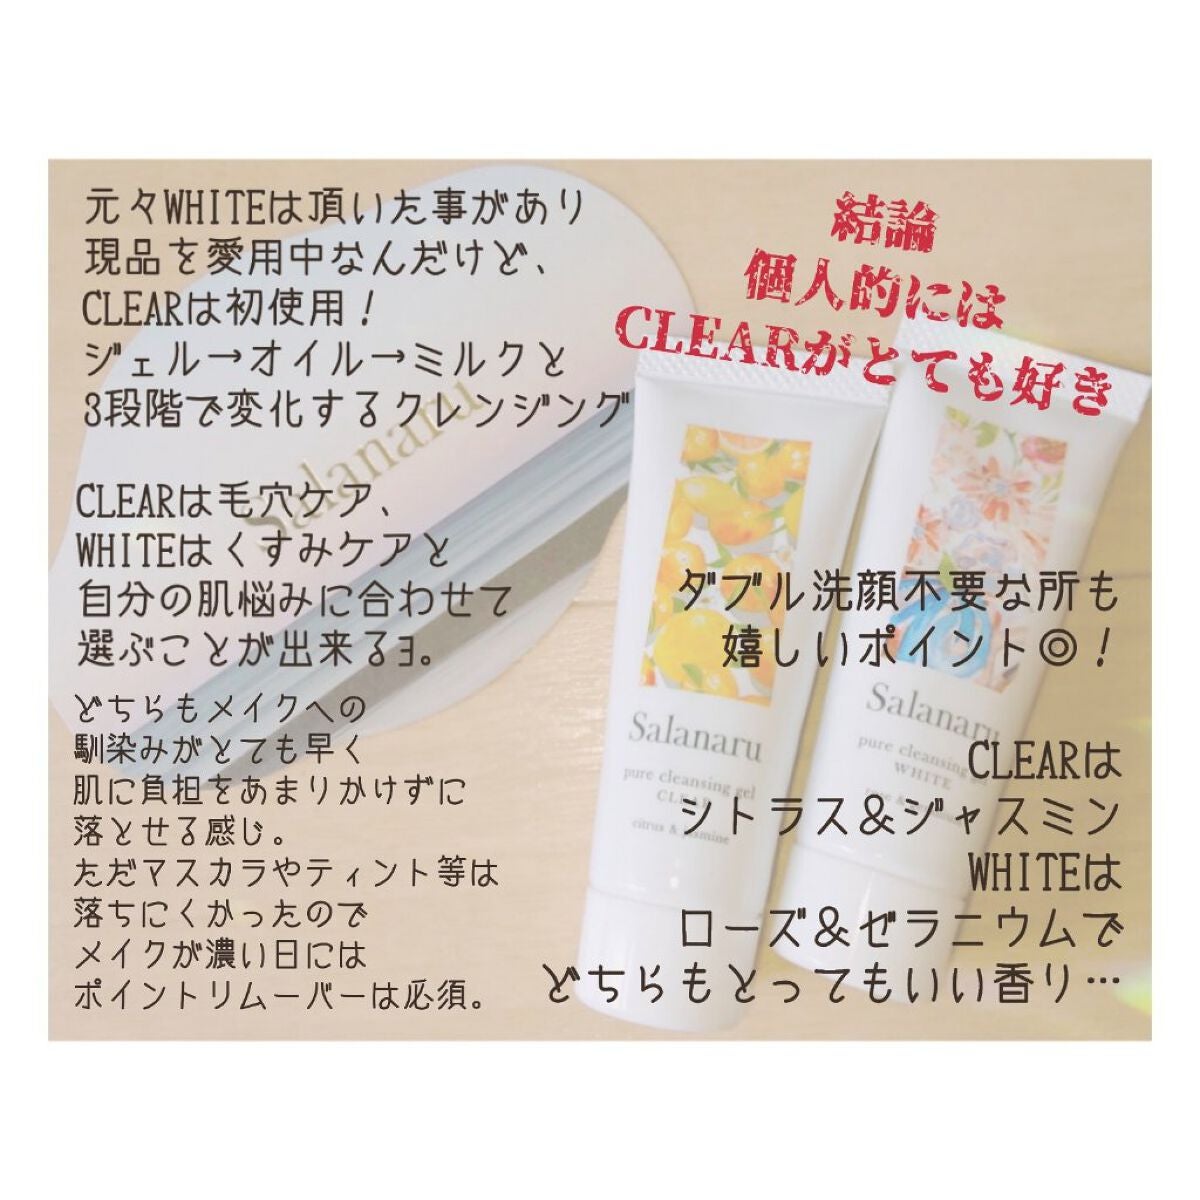 元々WHITEは頂いた事があり
現品を愛用中なんだけど、
CLEARは初使用！
ジェル→オイル→ミルクと
3段階で変化するクレンジング
CLEARは毛穴ケア、
WHITEはくすみケアと
自分の肌悩みに合わせて
選ぶことが出来るヨ。
どちらもメイクへの
馴染みがとても早く
肌に負担をあまりかけずに
落とせる感じ。
ただマスカラやティント等は
落ちにくかったので
メイクが濃い日には
ポイントリムーバーは必須。
結論
個人的には
CLEARがとても好き
ダブル洗顔不要な所も
嬉しいポイント◎！
CLEARは
シトラス&ジャスミン
WHITEは
ローズ&ゼラニウムで
どちらもとってもいい香り…
Salanaru
Salanaru
pure cleansing gel
CLEAR
citrus & jasmine
Salanaru
pure cleansing gel
WHITE